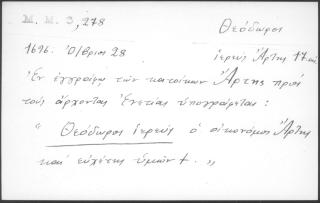 Μ. Μ. 3, 278
Θεόδωρος
1696. Ο/βριος 28
ἱερεὺς Ἄρτης 17 αἰ.
Ἐν ἐγγράφῳ τῶν κατοίκων Ἄρτης πρὸς
τοὺς ἄρχοντας Ἑνετίας ὑπογράφεται:
" Θεόδωρος ἱερεὺς ὁ οἰκονόμος Ἄρτης
καὶ εὐχέτης ὑμῶν +. "